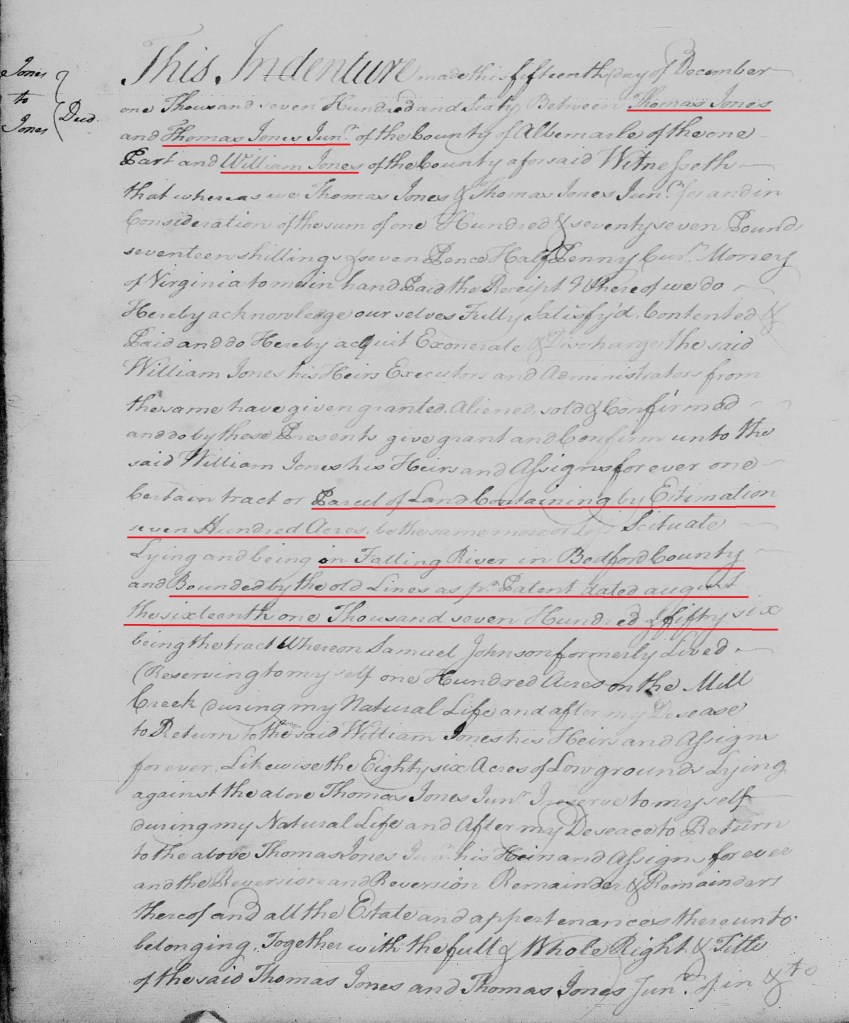 Jones
to
Jones
Deed
This Indenture made this fifteenth day of December
one Thousand seven Hundred and Sixty Between Thomas Jones
and Thomas Jones Junr. of the County of Albemarle of the one
Part and William Jones of the County aforsaid Witnesseth
that whereas we Thomas Jones & Thomas Jones Junr. for and in
Consideration of the sum of one Hundred & seventy seven Pound
seventeen shillings & seven Pence Half Penny Curt. Money
of Virginia to me in hand Paid the Receipt Whereof we do
Hereby acknowledge ourselves Fully Satisfy'd, Contented &
Paid and do Hereby acquit Exonerate & Discharge the said
William Jones his Heirs Executors and Administrators from
the same have given granted, Aliened, sold & Confirmed
and do by these Presents give grant and Confirm unto the
said William Jones his Heirs and Assigns for ever one
Certain tract or Parcel of Land Containing by Estimation
seven Hundred Acres, be the same more or less Scituate
Lying and being on Falling River in Bedford County
and Bounded by the old Lines as pr. Patent dated august
the sixteenth one Thousand seven Hundred & fifty six
being the tract Whereon Samuel Johnson formerly Lived
(Reserving to my self one Hundred Acres on the Mill
Creek during my Natural Life and after my Desease
to Return to the said William Jones his Heirs and Assigns
forever, Likewise the Eighty six Acres of Low grounds Lying
against the above Thomas Jones Junr. I reserve to my self
during my Natural Life and After my Deseace to Return
to the above Thomas Jones Junr. his Heirs and Assigns for ever
and the Reversion and Reversion Remainder & Remainders
thereof and all the Estate and appertenances thereunto
belonging, Together with the full & Whole Right & Title
of the said Thomas Jones and Thomas Jones Junr. of in & to